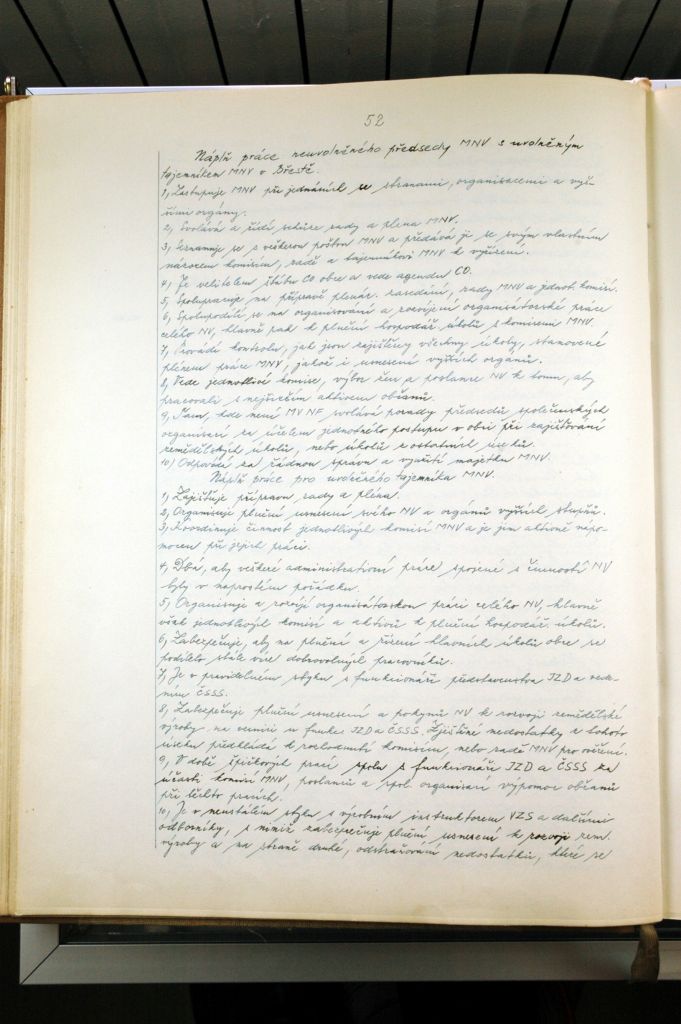 52
Náplň práce neuvolněného předsedy MNV s uvolněným
tajemníkem MNV v Břestě.
1, Zastupuje MNV při jednáních se stranami, organisacemi a vyš-
šími orgány.
2, Svolává a řídí schůze rady a plena MNV.
3, Seznamuje se s veškerou poštou MNV a předává ji se svým vlastním
názorem komisím, radě a tajemníkovi MNV k vyřízení.
4, Je velitelem štábu CO obce a vede agendu CO.
5, Spolupracuje na přípravě plenár. zasedání, rady MNV a jednot. komisí.
6, Spolupodílí se na organisování a rozvíjení organisátorské práce
celého NV, hlavně pak k plnění hospodář. úkolů s komisemi MNV.
7, Provádí kontrolu, jak jsou zajištěny všechny úkoly, stanovené
plénem práce MNV, jakož i usnesení vyšších orgánů.
8, Vede jednotlivé komise, výbor žen a poslance NV k tomu, aby
pracovali s nejširším aktivem občanů.
9, Tam, kde není MV NF svolává porady předsedů společenských
organisací za účelem jednotného postupu v obci při zajišťování
zemědělských úkolů, nebo úkolů z ostatních úseků.
10, Odpovídá za řádnou správu a využití majetku MNV.
Náplň práce pro uvolněného tajemníka MNV.
1, Zajišťuje přípravu rady a pléna.
2, Organisuje plnění usnesení svého NV a orgánů vyšších stupňů.
3, Koordinuje činnost jednotlivých komisí MNV a je jim aktivně nápo-
mocen při jejich práci.
4, Dbá, aby veškeré administrativní práce spojené s činností NV
byly v naprostém pořádku.
5, Organisuje a rozvíjí organisátorskou práci celého NV, hlavně
však jednotlivých komisí a aktivů k plnění hospodář. úkolů.
6, Zabezpečuje, aby na plnění a řízení hlavních úkolů obce se
podílelo stále více dobrovolných pracovníků.
7, Je v pravidelném styku s funkcionáři představenstva JZD a vede-
ním ČSSS.
8, Zabezpečuje plnění usnesení a pokynů NV k rozvoji zemědělské
výroby na území u funkc. JZD a ČSSS. Zjištěné nedostatky z tohoto
úseku předkládá k rozhodnutí komisím, nebo radě MNV pro ověření.
9, V době špičkových prací spolu s funkcionáři JZD a ČSSS za
účasti komisí MNV, poslanců a spol. organisací výpomoc občanů
při těchto pracích.
10, Je v neustálém styku s výrobním instruktorem VZS a dalšími
odborníky, s nimiž zabezpečuje plnění usnesení k rozvoji zem.
výroby a na straně druhé, odstraňování nedostatků, které se